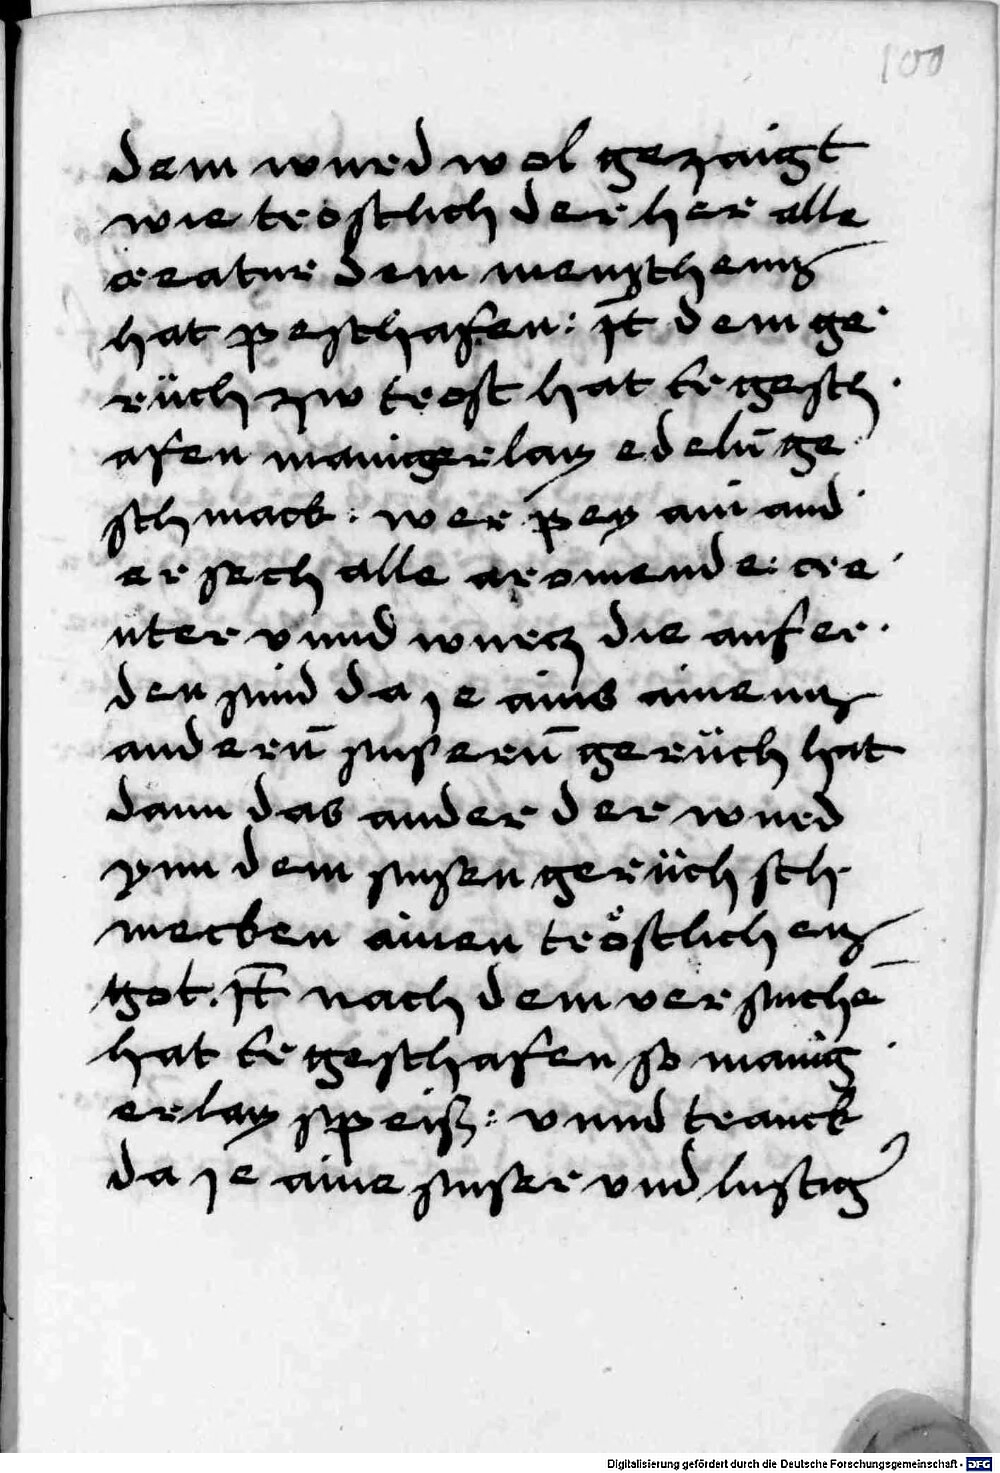 100
dem wurd wol gezaigt
wie trostlich der her alle
creatur dem mengschenn
hat peschafen: It dem ge
rüch zw trost hat Er gesch
afen manigerlay edelū ge
schmack: wer pey ain and
er sech alle aromende cre
uter vnnd wurcz die auf er
den sind da je ains ainenn
anderū susserū gerüch hat
dann das ander der wurd
ynn dem sussen gerüch sch
mecken ainen tröstlichenn
got. It nach dem versuchē
hat Er geschafen so manig
erlay speiß: vnnd tranck
da je aine susser vnd lustig
Digitalisierung gefördert durch die Deutsche Forschungsgemeinschaft - DFG